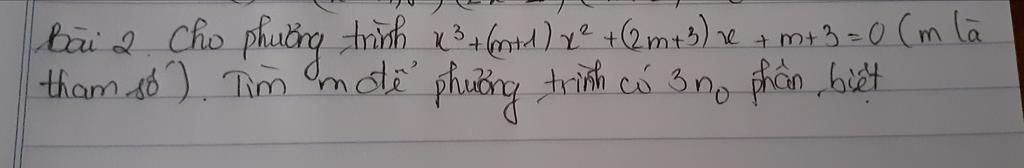 bài 2. Cho phương trình x³+(m+1)x²+(2m+3)x+m+3=0 (m là
tham số). Tìm m để phương trình có 3n₀ phân biệt